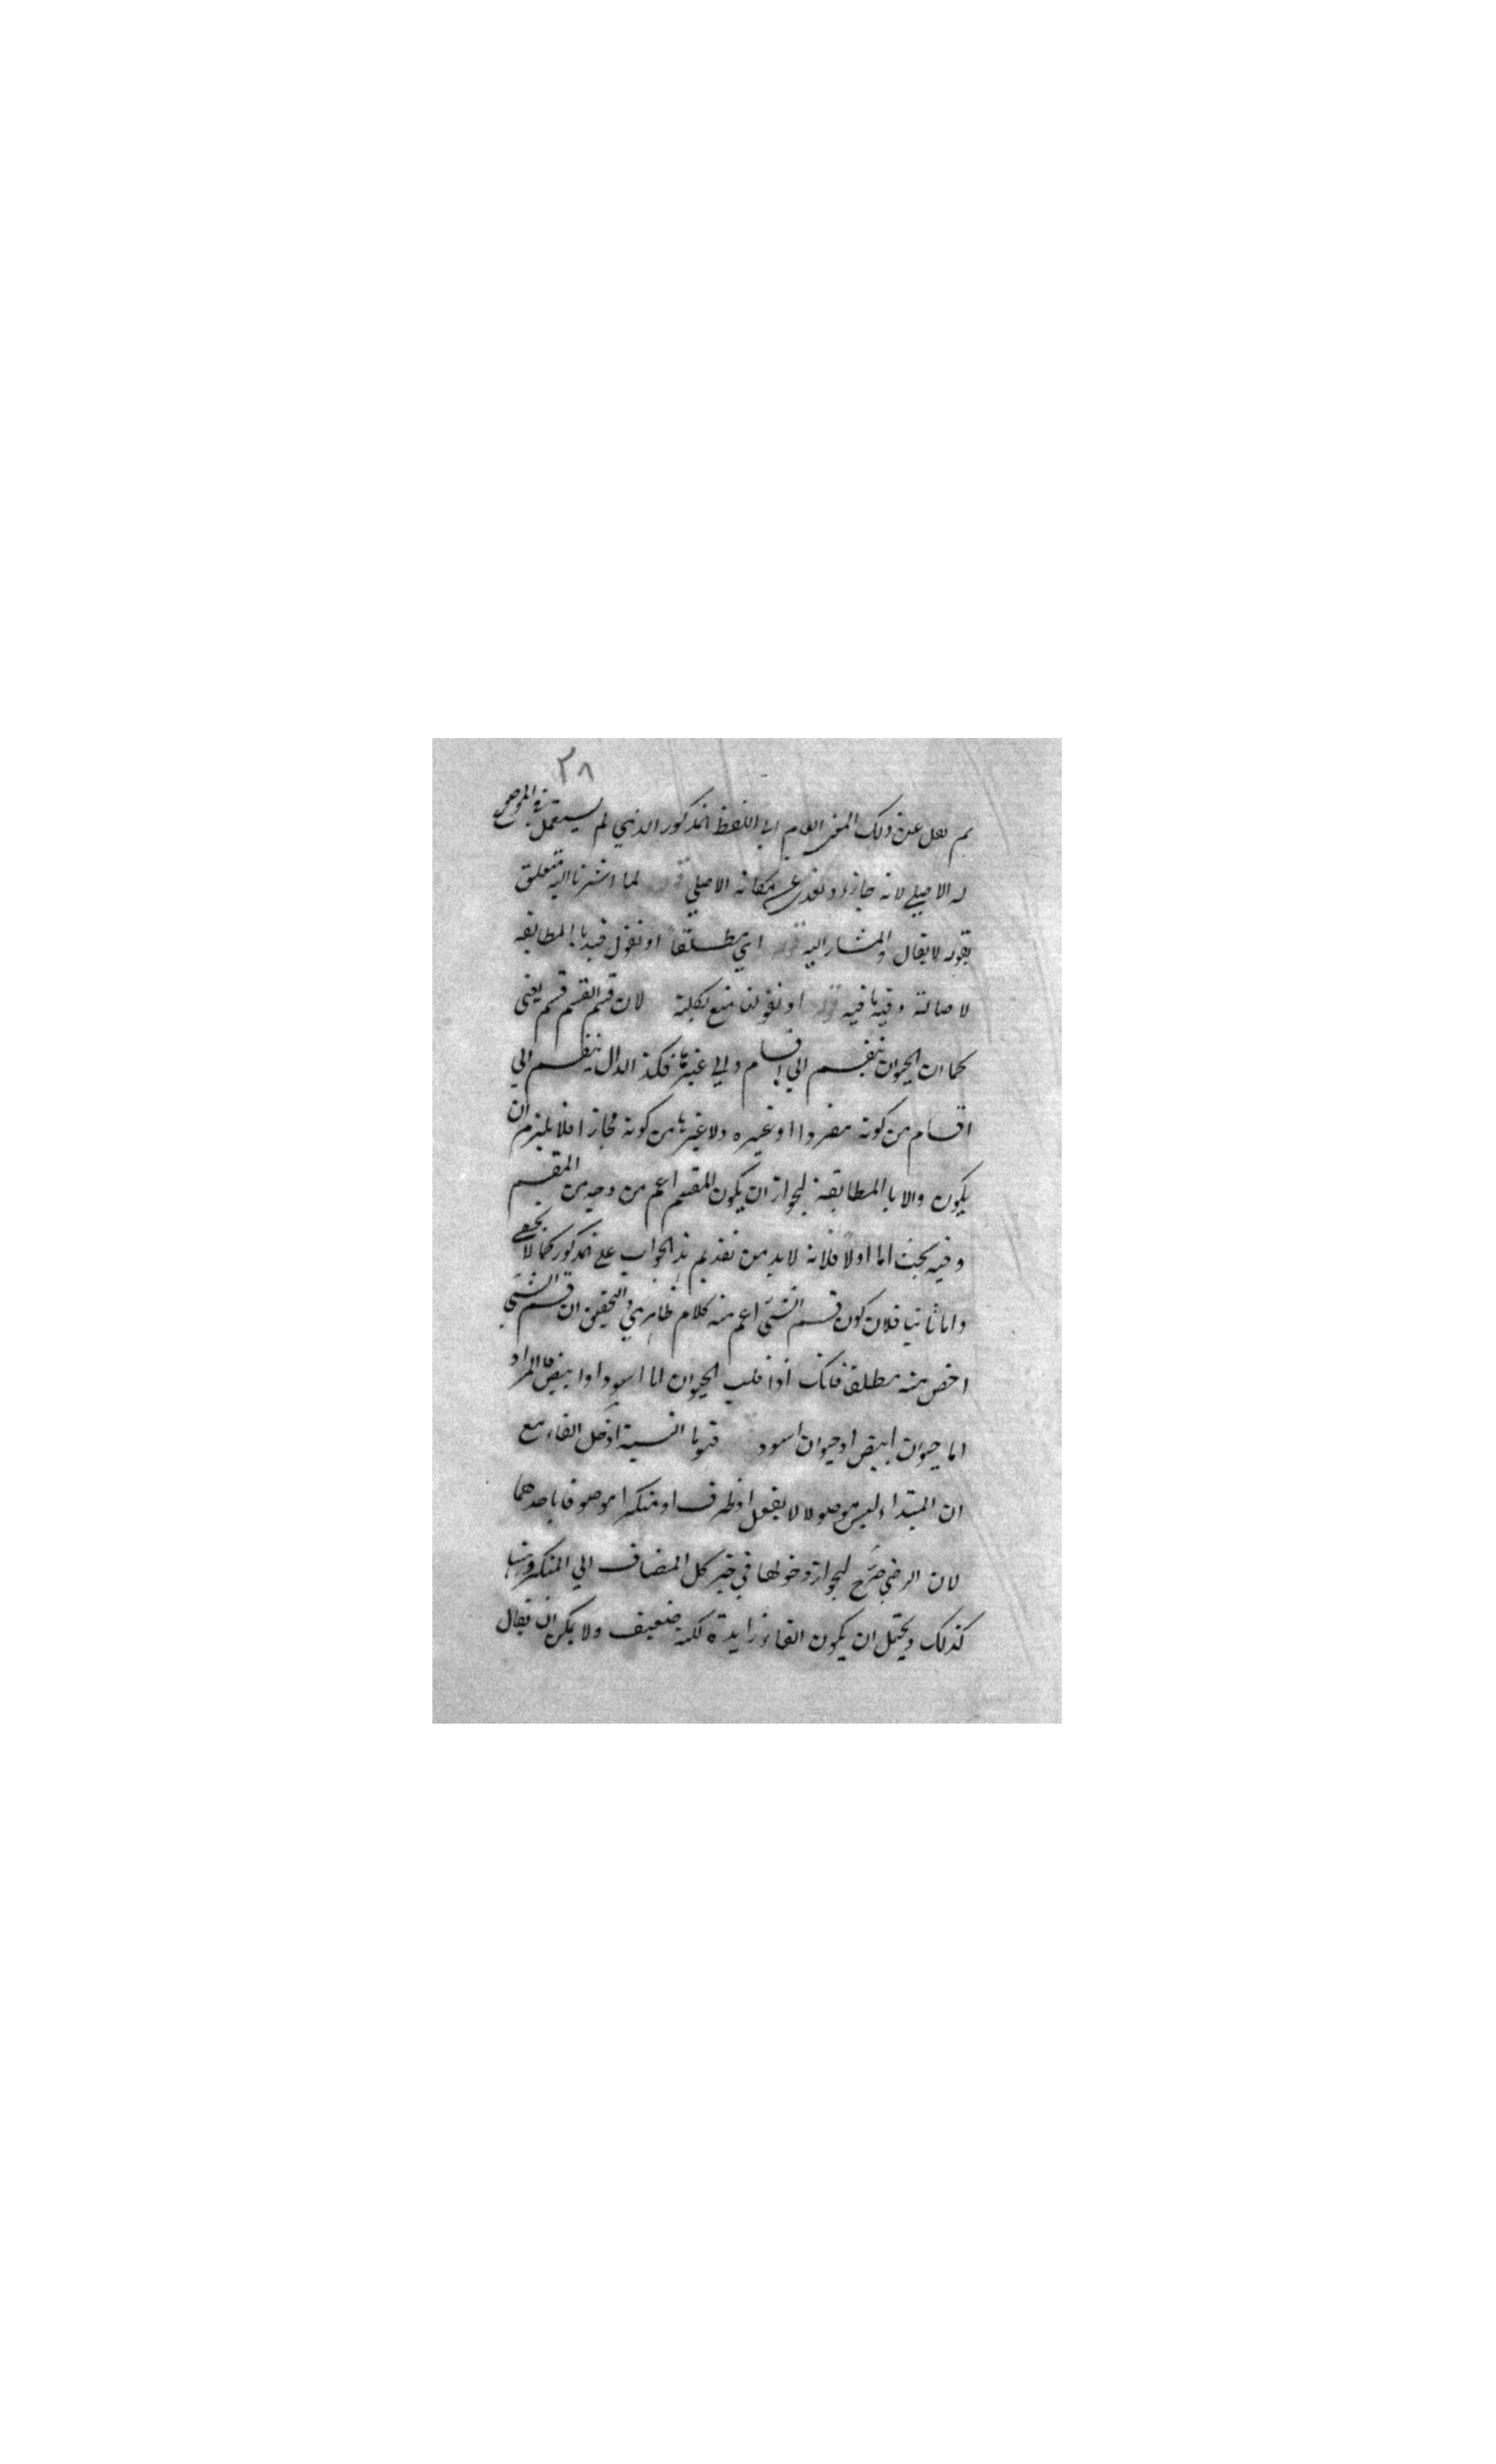 ٣٨
ثم نقل عن ذلك المعنى العام الى اللفظ المذكور الذي لم يستعمل في الموضوع
له الاصلي لانه جاز وتعدى عن مكانه الاصلي قوله لما اشرنا اليه متعلق
بقوله لا يقال والمشار اليه قوله اي مطلقا او نقول قيد بالمطابقة
لاصالته وفيه ما فيه قوله او نقول نمنع كلية لان قسم القسم قسم يعني
كما ان الحيوان ينقسم الى اقسام والى غيرها فكذا الدال ينقسم الى
اقسام من كونه مفردا او غيره ولا غيرها من كونه مجازا فلا يلزم ان
يكون والا بالمطابقة لجواز ان يكون المقسم اعم من وجه من المقسم
وفيه بحث اما اولا فلانه لا بد من تقديم هذا الجواب على المذكور كما لا يخفى
واما ثانيا فلان كون قسم الشئ اعم منه كلام ظاهري والتحقيق ان قسم الشئ
اخص منه مطلقا فانك اذا قلت الحيوان اما اسود او ابيض فالمراد
اما حيوان ابيض او حيوان اسود فهو بالنسبة ادخل الفاء مع
ان المبتداء ليس موصولا لا بفعل او ظرف او منكرا موصوفا باحدهما
لان الرضي صرّح لجواز دخولها في خبر كل المضاف الى المنكر وهنا
كذلك ويحتمل ان يكون الفاء زايدة لكنه ضعيف ولا يمكن ان يقال